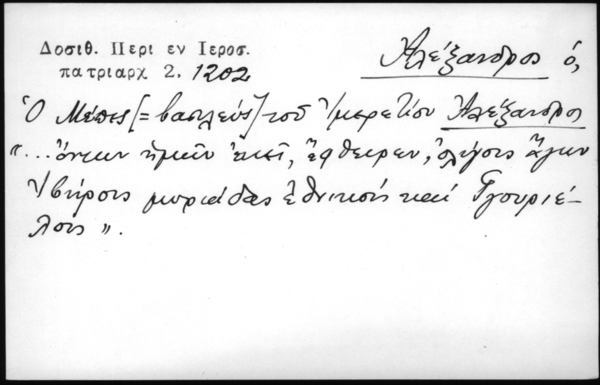 Δοσιθ. Περι εν Ιεροσ.
πατριαρχ 2. 1202
Ἀλέξανδρος ὁ,
Ὁ Μέπες [= βασιλεύς] τοῦ Ἰμερετίου Ἀλέξανδρος
"... ὄντων ἡμῶν ἐκεῖ, ἔφθειρεν, ὀλίγοις ἄγων
Ἴβηρσις μυριάδας ἐθνικούς καί Γγουριέ-
λους".